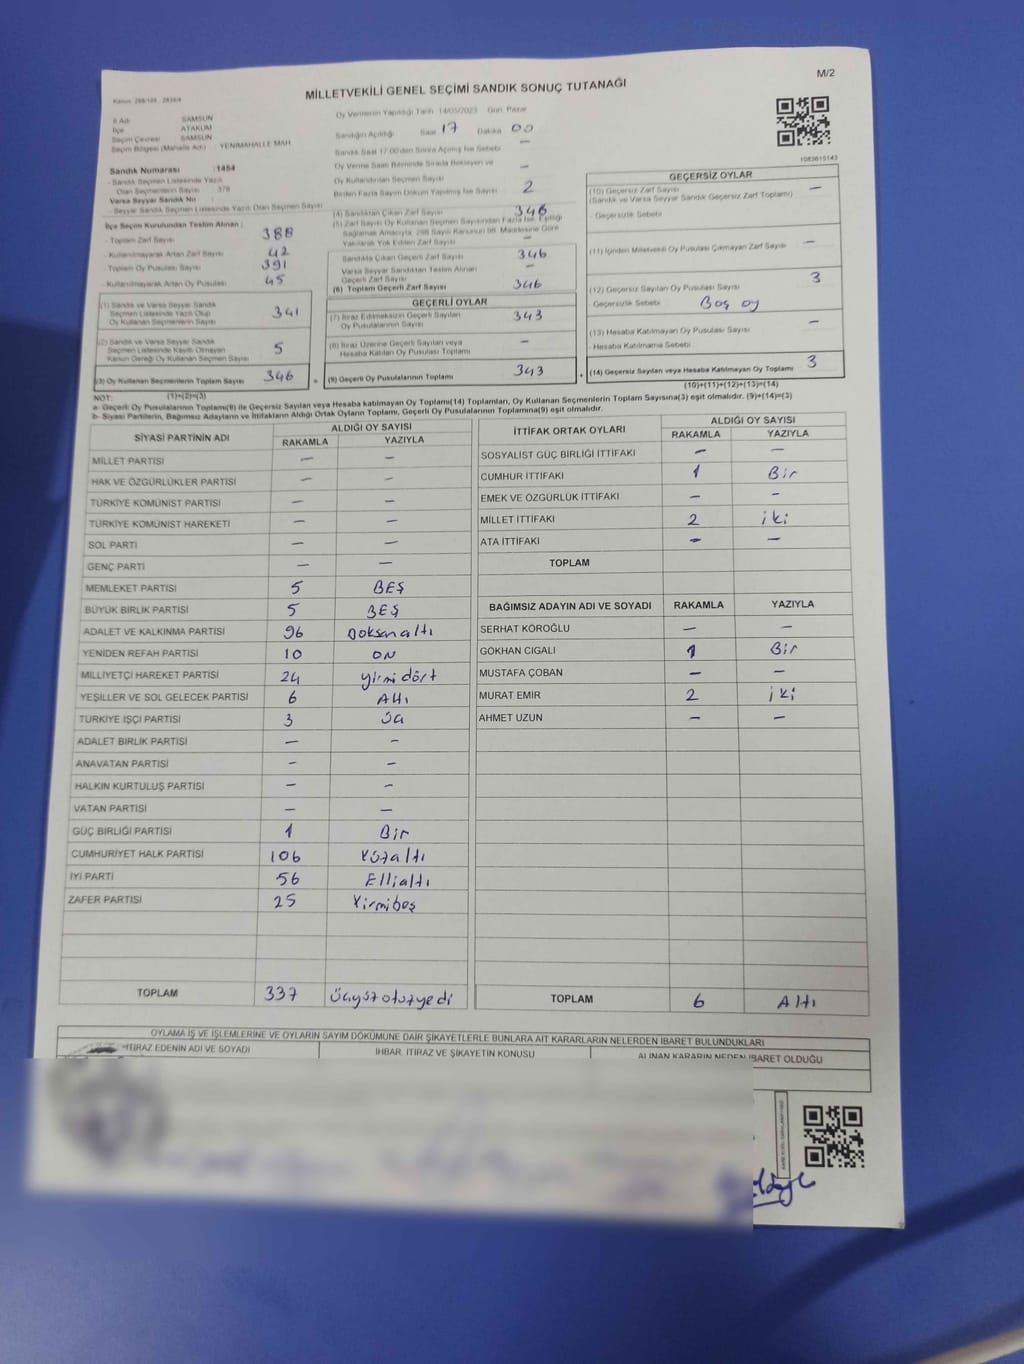 M/2
Kanun: 298/105 , 2839/4
MİLLETVEKİLİ GENEL SEÇİMİ SANDIK SONUÇ TUTANAĞI
İl Adı SAMSUN
İlçe ATAKUM
Seçim Çevresi SAMSUN
Seçim Bölgesi (Mahalle Adı) YENİMAHALLE MAH
Sandık Numarası : 1454
- Sandık Seçmen Listesinde Yazılı
Olan Seçmenlerin Sayısı 378
Varsa Seyyar Sandık No :
- Seyyar Sandık Seçmen Listesinde Yazılı Olan Seçmen Sayısı
İlçe Seçim Kurulundan Teslim Alınan ;
- Toplam Zarf Sayısı 388
- Kullanılmayarak Artan Zarf Sayısı 42
- Toplam Oy Pusulası Sayısı 391
- Kullanılmayarak Artan Oy Pusulası 45
(1) Sandık ve Varsa Seyyar Sandık
Seçmen Listesinde Yazılı Olup
Oy Kullanan Seçmenlerin Sayısı 341
(2) Sandık ve Varsa Seyyar Sandık
Seçmen Listesinde Kayıtlı Olmayan
Kanun Gereği Oy Kullanan Seçmen Sayısı 5
(3) Oy Kullanan Seçmenlerin Toplam Sayısı 346
(1)+(2)=(3)
Oy Vermenin Yapıldığı Tarih 14/05/2023 Gün Pazar
Sandığın Açıldığı Saat 17 Dakika 00
Sandık Saat 17:00'den Sonra Açılmış İse Sebebi –
Oy Verme Saati Bitiminde Sırada Bekleyen ve
Oy Kullandırılan Seçmen Sayısı –
Birden Fazla Sayım Döküm Yapılmış İse Sayısı 2
(4) Sandıktan Çıkan Zarf Sayısı 346
(5) Zarf Sayısı Oy Kullanan Seçmen Sayısından Fazla İse, Eşitliği
Sağlamak Amacıyla, 298 Sayılı Kanunun 98. Maddesine Göre
Yakılarak Yok Edilen Zarf Sayısı –
Sandıkta Çıkan Geçerli Zarf Sayısı 346
Varsa Seyyar Sandıktan Teslim Alınan
Geçerli Zarf Sayısı –
(6) Toplam Geçerli Zarf Sayısı 346
GEÇERLİ OYLAR
(7) İtiraz Edilmeksizin Geçerli Sayılan
Oy Pusulalarının Sayısı 343
(8) İtiraz Üzerine Geçerli Sayılan veya
Hesaba Katılan Oy Pusulası Toplamı –
= (9) Geçerli Oy Pusulalarının Toplamı 343
1083615143
GEÇERSİZ OYLAR
(10) Geçersiz Zarf Sayısı
(Sandık ve Varsa Seyyar Sandık Geçersiz Zarf Toplamı) –
- Geçersizlik Sebebi
(11) İçinden Milletvekili Oy Pusulası Çıkmayan Zarf Sayısı –
(12) Geçersiz Sayılan Oy Pusulası Sayısı 3
- Geçersizlik Sebebi Boş oy
(13) Hesaba Katılmayan Oy Pusulası Sayısı –
- Hesaba Katılmama Sebebi
+ (14) Geçersiz Sayılan veya Hesaba Katılmayan Oy Toplamı 3
(10)+(11)+(12)+(13)=(14)
NOT:
a- Geçerli Oy Pusulalarının Toplamı(9) ile Geçersiz Sayılan veya Hesaba katılmayan Oy Toplamı(14) Toplamları, Oy Kullanan Seçmenlerin Toplam Sayısına(3) eşit olmalıdır. (9)+(14)=(3)
b- Siyasi Partilerin, Bağımsız Adayların ve İttifakların Aldığı Ortak Oyların Toplamı, Geçerli Oy Pusulalarının Toplamına(9) eşit olmalıdır.
SİYASİ PARTİNİN ADI ALDIĞI OY SAYISI
RAKAMLA YAZIYLA
MİLLET PARTİSİ – –
HAK VE ÖZGÜRLÜKLER PARTİSİ – –
TÜRKİYE KOMÜNİST PARTİSİ – –
TÜRKİYE KOMÜNİST HAREKETİ – –
SOL PARTİ – –
GENÇ PARTİ – –
MEMLEKET PARTİSİ 5 BEŞ
BÜYÜK BİRLİK PARTİSİ 5 BEŞ
ADALET VE KALKINMA PARTİSİ 96 Doksanaltı
YENİDEN REFAH PARTİSİ 10 ON
MİLLİYETÇİ HAREKET PARTİSİ 24 yirmi dört
YEŞİLLER VE SOL GELECEK PARTİSİ 6 Altı
TÜRKİYE İŞÇİ PARTİSİ 3 Üç
ADALET BİRLİK PARTİSİ – –
ANAVATAN PARTİSİ – –
HALKIN KURTULUŞ PARTİSİ – –
VATAN PARTİSİ – –
GÜÇ BİRLİĞİ PARTİSİ 1 Bir
CUMHURİYET HALK PARTİSİ 106 Yüzaltı
İYİ PARTİ 56 Ellialtı
ZAFER PARTİSİ 25 Yirmibeş
TOPLAM 337 Üçyüzotuzyedi
İTTİFAK ORTAK OYLARI ALDIĞI OY SAYISI
RAKAMLA YAZIYLA
SOSYALİST GÜÇ BİRLİĞİ İTTİFAKI – –
CUMHUR İTTİFAKI 1 Bir
EMEK VE ÖZGÜRLÜK İTTİFAKI – –
MİLLET İTTİFAKI 2 iki
ATA İTTİFAKI – –
TOPLAM
BAĞIMSIZ ADAYIN ADI VE SOYADI RAKAMLA YAZIYLA
SERHAT KÖROĞLU – –
GÖKHAN CIGALI 1 Bir
MUSTAFA ÇOBAN – –
MURAT EMİR 2 iki
AHMET UZUN – –
TOPLAM 6 Altı
OYLAMA İŞ VE İŞLEMLERİNE VE OYLARIN SAYIM DÖKÜMÜNE DAİR ŞİKAYETLERLE BUNLARA AİT KARARLARIN NELERDEN İBARET BULUNDUKLARI
İTİRAZ EDENİN ADI VE SOYADI İHBAR, İTİRAZ VE ŞİKAYETİN KONUSU ALINAN KARARIN NEDEN İBARET OLDUĞU